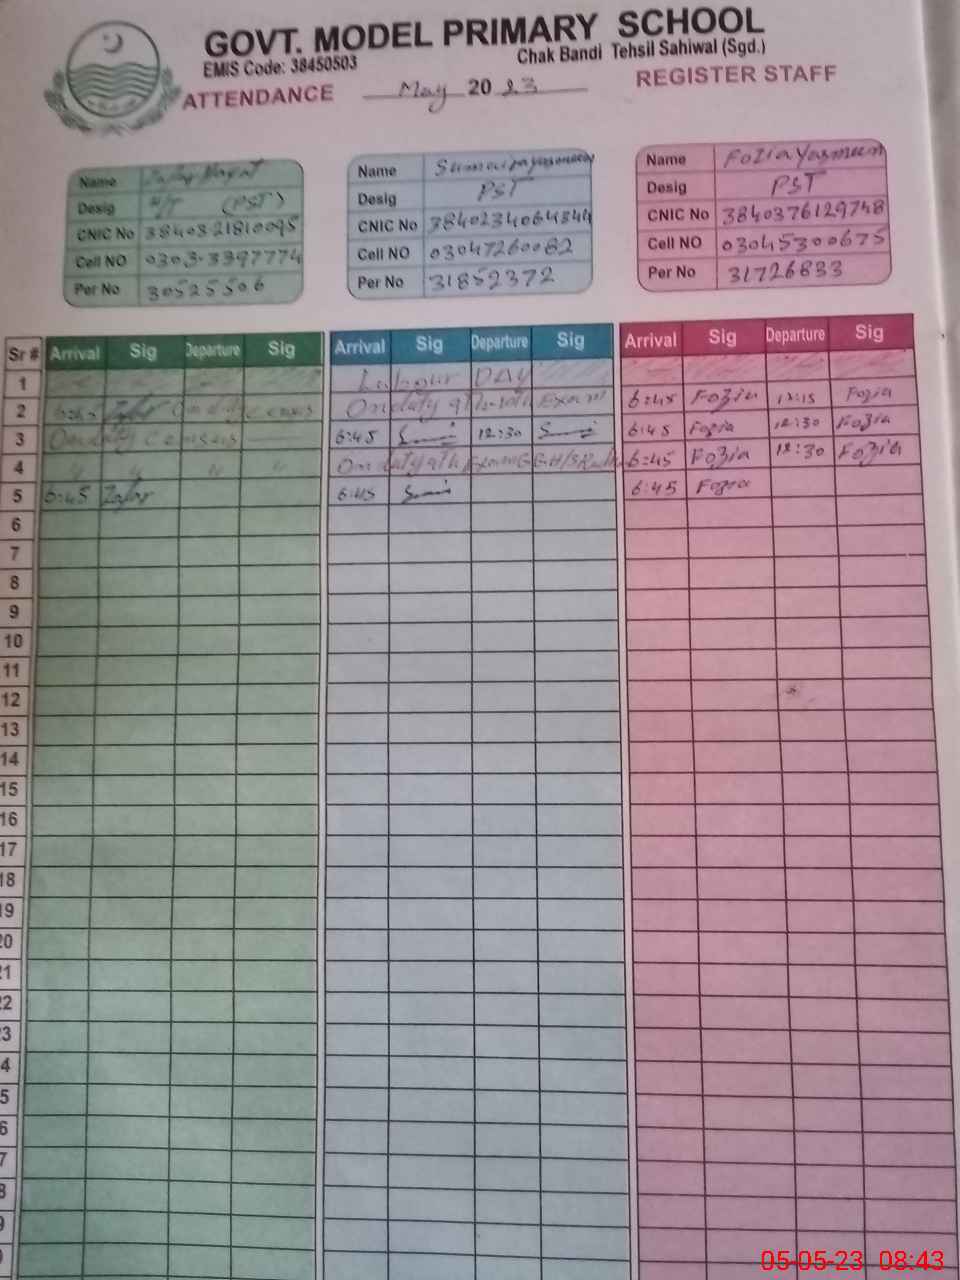 GOVT. MODEL PRIMARY SCHOOL
EMIS Code: 38450503 Chak Bandi Tehsil Sahiwal (Sgd.)
ATTENDANCE May 2023 REGISTER STAFF
Name Zafar Hayat
Desig H/T (PST)
CNIC No 38403-21810095
Cell NO 0303-3397774
Per No 30525506
Name
Desig PST
CNIC No 3840234064344
Cell NO 03047260082
Per No 31852372
Name Fozia Yasmeen
Desig PST
CNIC No 3840376129748
Cell NO 03045300675
Per No 31726833
Sr # Arrival Sig Departure Sig Arrival Sig Departure Sig Arrival Sig Departure Sig
1 Labour DAY
2 6:45 Zafar On duty census On duty 9th Exam 6:45 Fozia 12:15 Fozia
3 On duty Census 6:45 12:30 6:45 Fozia 12:30 Fozia
4 " " " " On duty 9th Exam 6:45 Fozia 12:30 Fozia
5 6:45 Zafar 6:45 6:45 Fozia
6
7
8
9
10
11
12
13
14
15
16
17
18
19
20
21
22
23
4
5
6
7
8
9
05-05-23 08:43